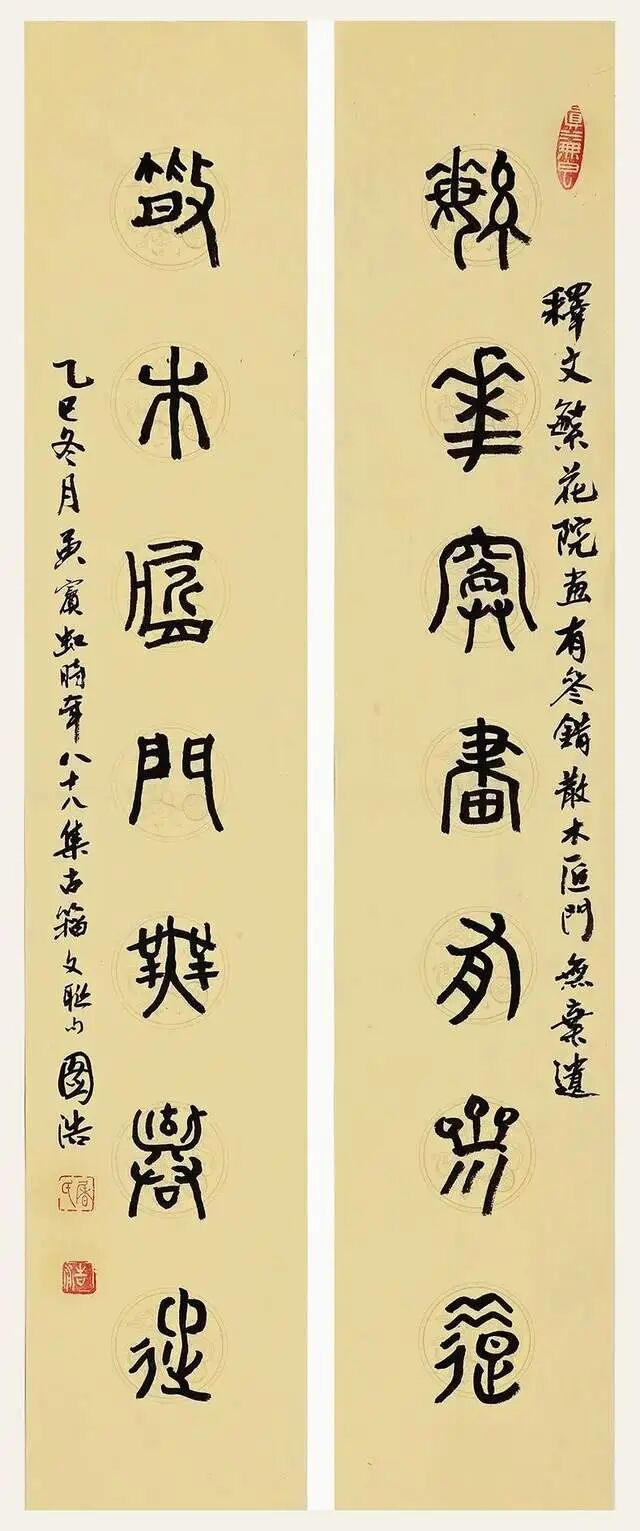 釋文繁花院畫有參錯散木匠門無棄遺
緐華寏畫有參𨒪
散木匠門無棄遺
乙巳冬月黃賓虹時年八十八集古籀文聯句國浩